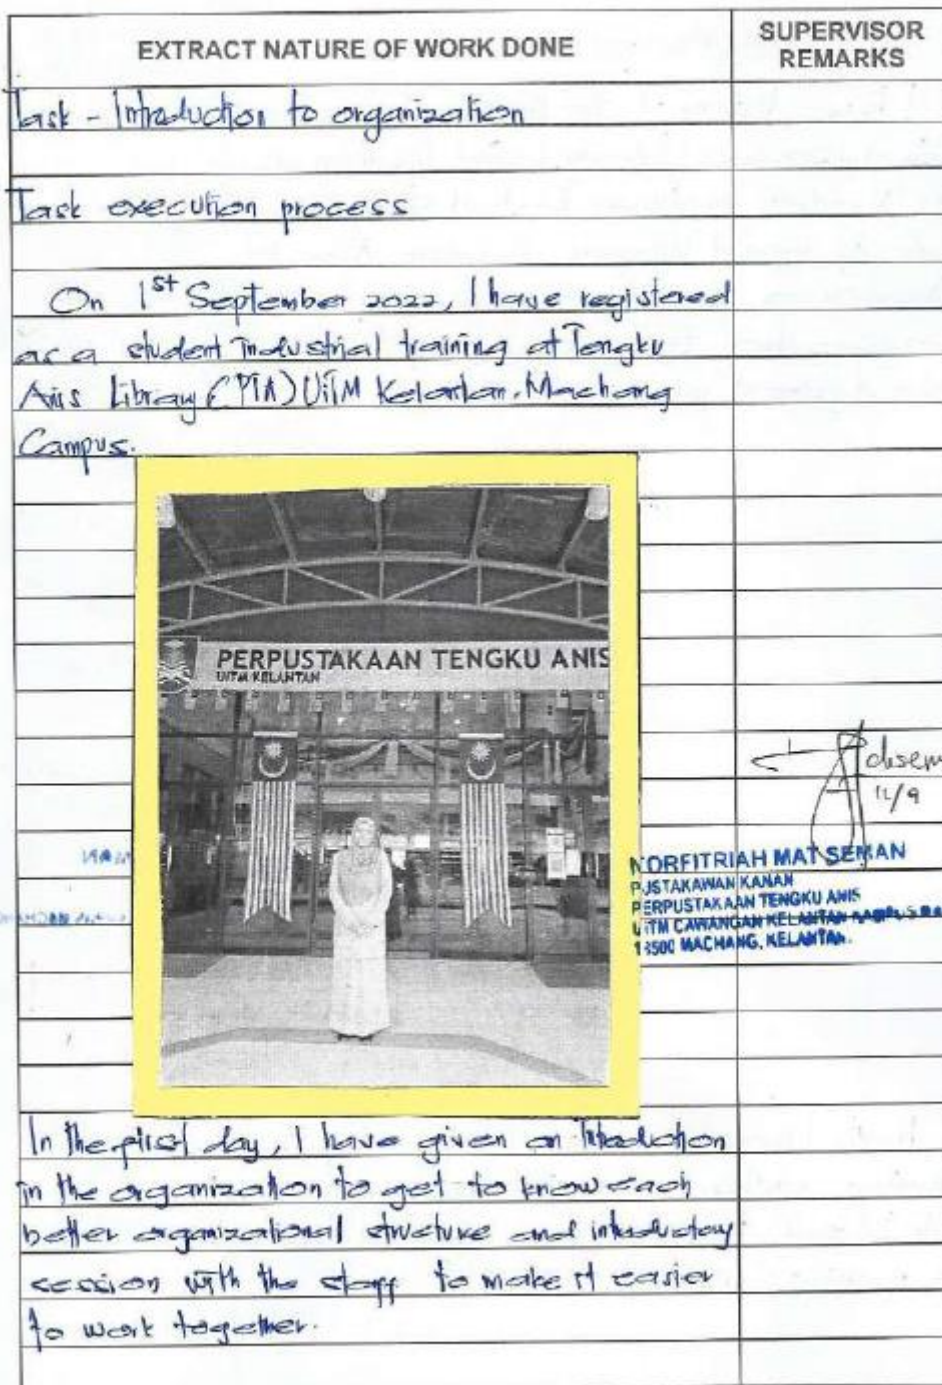 EXTRACT NATURE OF WORK DONE
SUPERVISOR
REMARKS
Task - Introduction to organization
Task execution process
On 1st September 2022, I have registered
as a student industrial training at Tengku
Anis Library (PTA) UiTM Kelantan, Machang
Campus.
PERPUSTAKAAN TENGKU ANIS
UiTM KELANTAN
12/9
NORFITRIAH MAT SEMAN
PUSTAKAWAN KANAN
PERPUSTAKAAN TENGKU ANIS
UiTM CAWANGAN KELANTAN KAMPUS
18500 MACHANG, KELANTAN.
In the first day, I have given an Introduction
in the organization to get to know each
better organizational structure and introductory
session with the staff to make it easier
to work together.